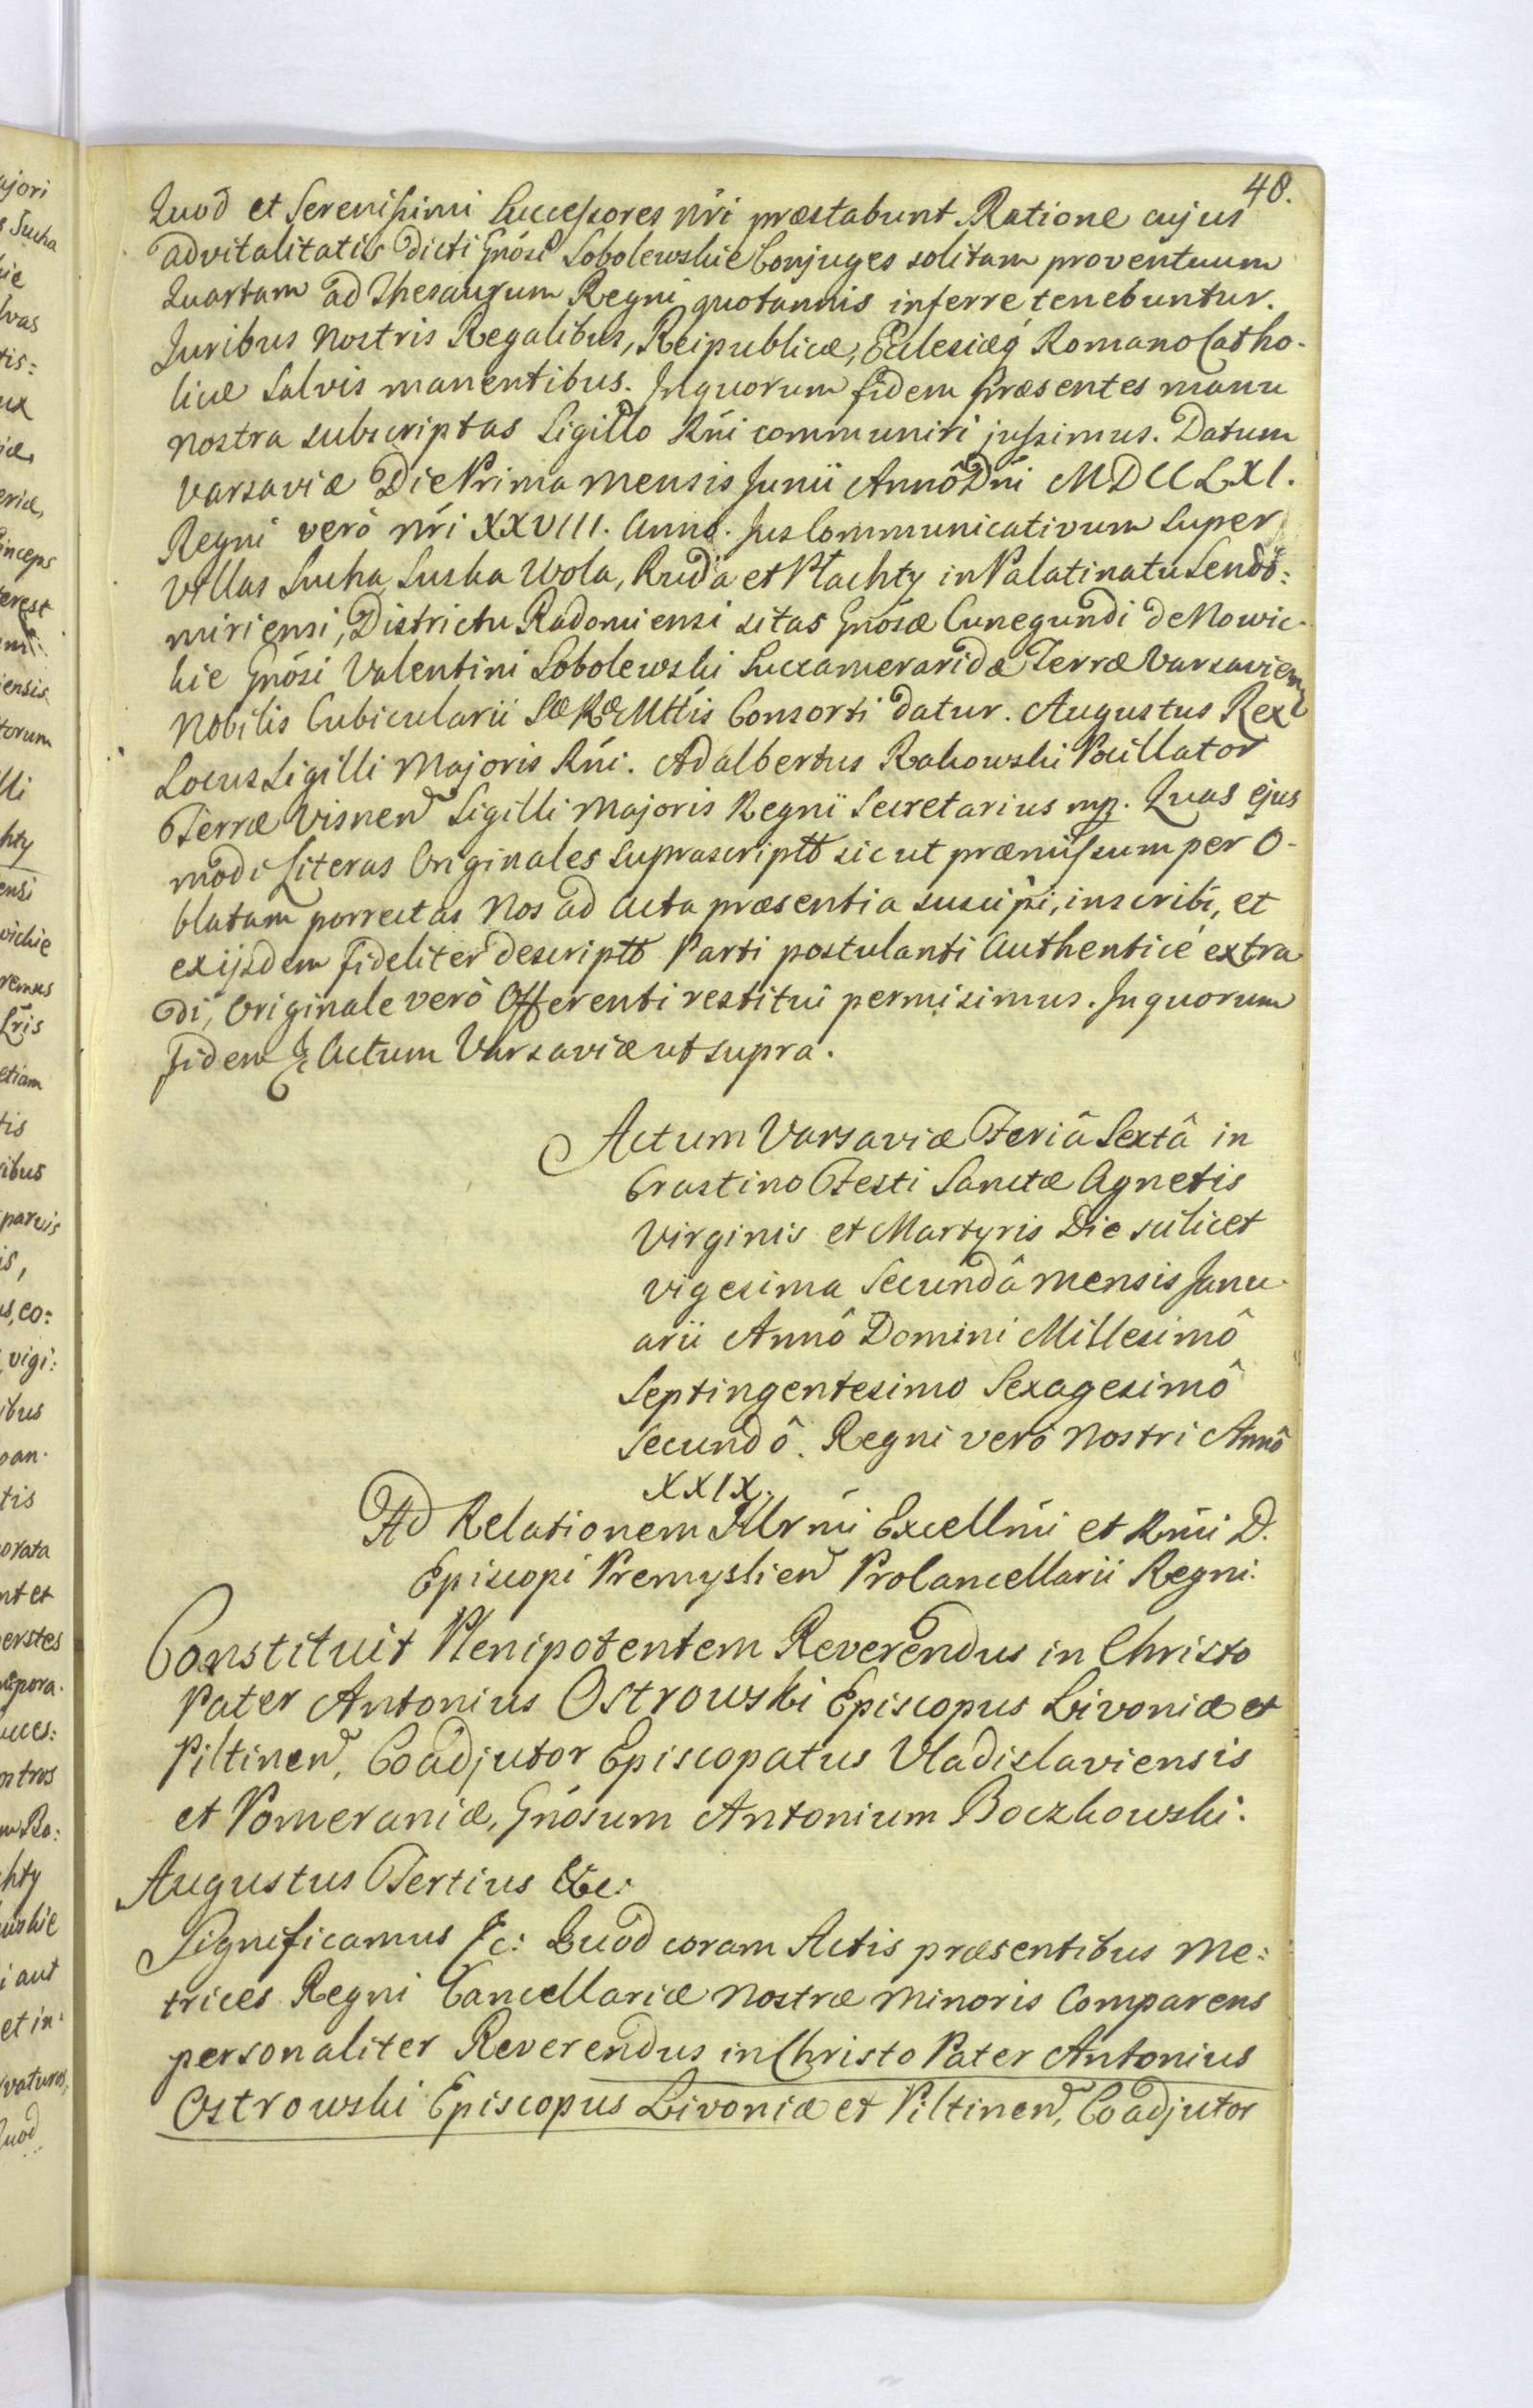 48.
Quod et Serenissimi Successores nri præstabunt. Ratione cujus
advitalitatis dicti Gnosi Sobolewskie Conjuges solitam proventuum
Quartam ad Thesaurum Regni quotannis inferre tenebuntur.
Juribus nostris Regalibus, Reipublicæ, Ecclesiæq Romano Catho-
licæ salvis manentibus. In quorum fidem præsentes manu
nostra subscriptas Sigillo Rni communiri jussimus. Datum
Varsaviæ Die Prima mensis Junii Annô Dni MDCCLXI.
Regni verò nri XXVIII. anno. Jus Communicativum super
Villas Sucha, Suska Wola, Ruda et Płachty in Palatinatu Sendo:
miriensi, Districtu Radomiensi sitas Gnosæ Cunegundi de Nowic-
kie Gnosi Valentini Sobolewski Succameraridæ Terræ Varsavien
Nobilis Cubicularii SæRæMttis Consorti datur. Augustus Rex
Locus Sigilli Majoris Rni. Adalbertus Rakowski Pocillator
Terræ Visnen Sigilli Majoris Regni Secretarius mp. Quas ejus
modi Literas Originales suprascriptt sicut præmissum per O-
blatam porrectas Nos ad Acta præsentia suscipi, inscribi, et
exijsdem fideliter descriptt Parti postulanti Authenticè extra
di, Originale verò Offerenti restitui permisimus. In quorum
fidem &c Actum Varsaviæ ut supra.
Actum Varsaviæ Feriâ Sextâ in
Crastino Festi Sanctæ Agnetis
Virginis et Martyris Die scilicet
vigesima Secundâ mensis Janu-
arii Annô Domini Millesimô
Septingentesimo Sexagesimô
Secundô. Regni verò nostri Annô
XXIX.
Ad Relationem Illrmi Excellmi et Rmi D.
Episcopi Premyslien Procancellarii Regni.
Constituit Plenipotentem Reverendus in Christo
Pater Antonius Ostrowski Episcopus Livoniæ et
Piltinen, Coadjutor Episcopatus Vladislaviensis
et Pomeraniæ, Gnosum Antonium Boczkowski.
Augustus Tertius &c:
Significamus &c: Quod coram Actis præsentibus Me:
trices Regni Cancellariæ nostræ Minoris Comparens
personaliter Reverendus in Christo Pater Antonius
Ostrowski Episcopus Livoniæ et Piltinen, Coadjutor